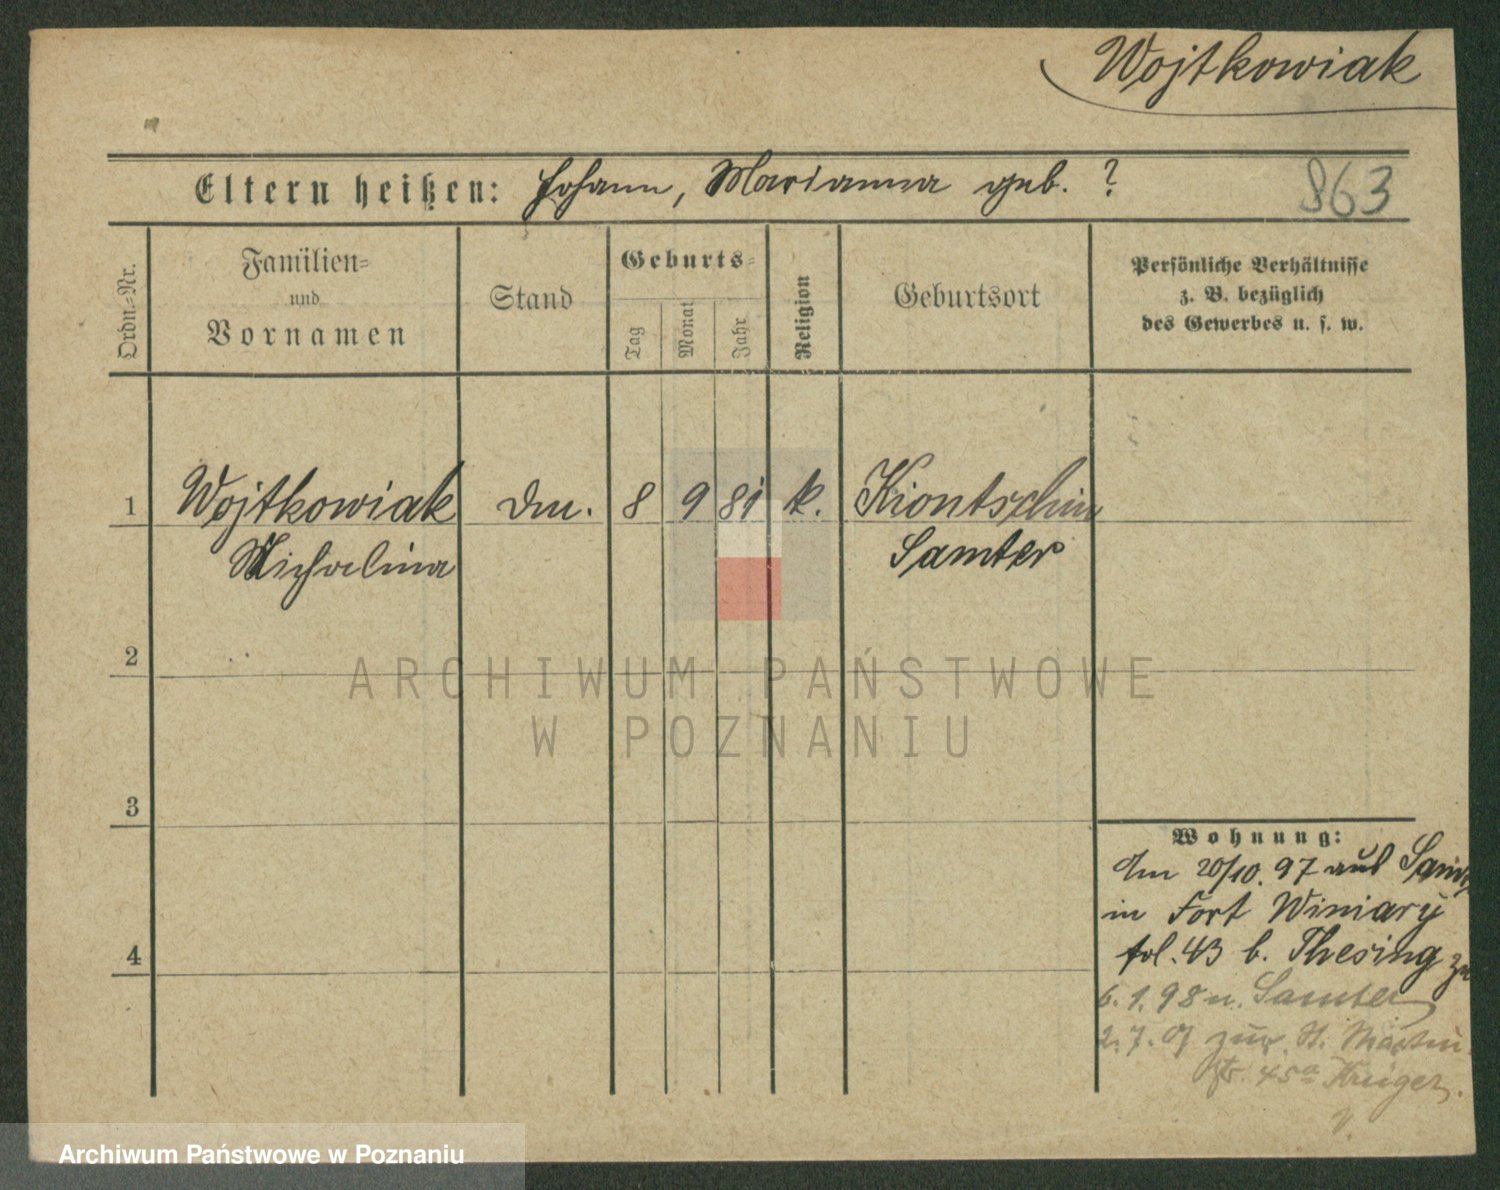 Wojtkowiak
Eltern heißen: Johann, Marianna geb. ?
863
Ordn.-Nr.
Familien-
und
Vornamen
Stand
Geburts-
Tag
Monat
Jahr
Religion
Geburtsort
Persönliche Verhältnisse
z. B. bezüglich
des Gewerbes u. s. w.
1 Wojtkowiak Dm. 8 9 81 k. Kiontschin
Michalina Samter
2
ARCHIWUM PAŃSTWOWE
W POZNANIU
3
4
Wohnung:
Am 20/10. 97 aus
in Fort Winiary
fol. 43 b. Thesing
6. 1. 98 n. Samter
2. 7. 01 zur. St. Martin
str. 45a Krüger.
Archiwum Państwowe w Poznaniu